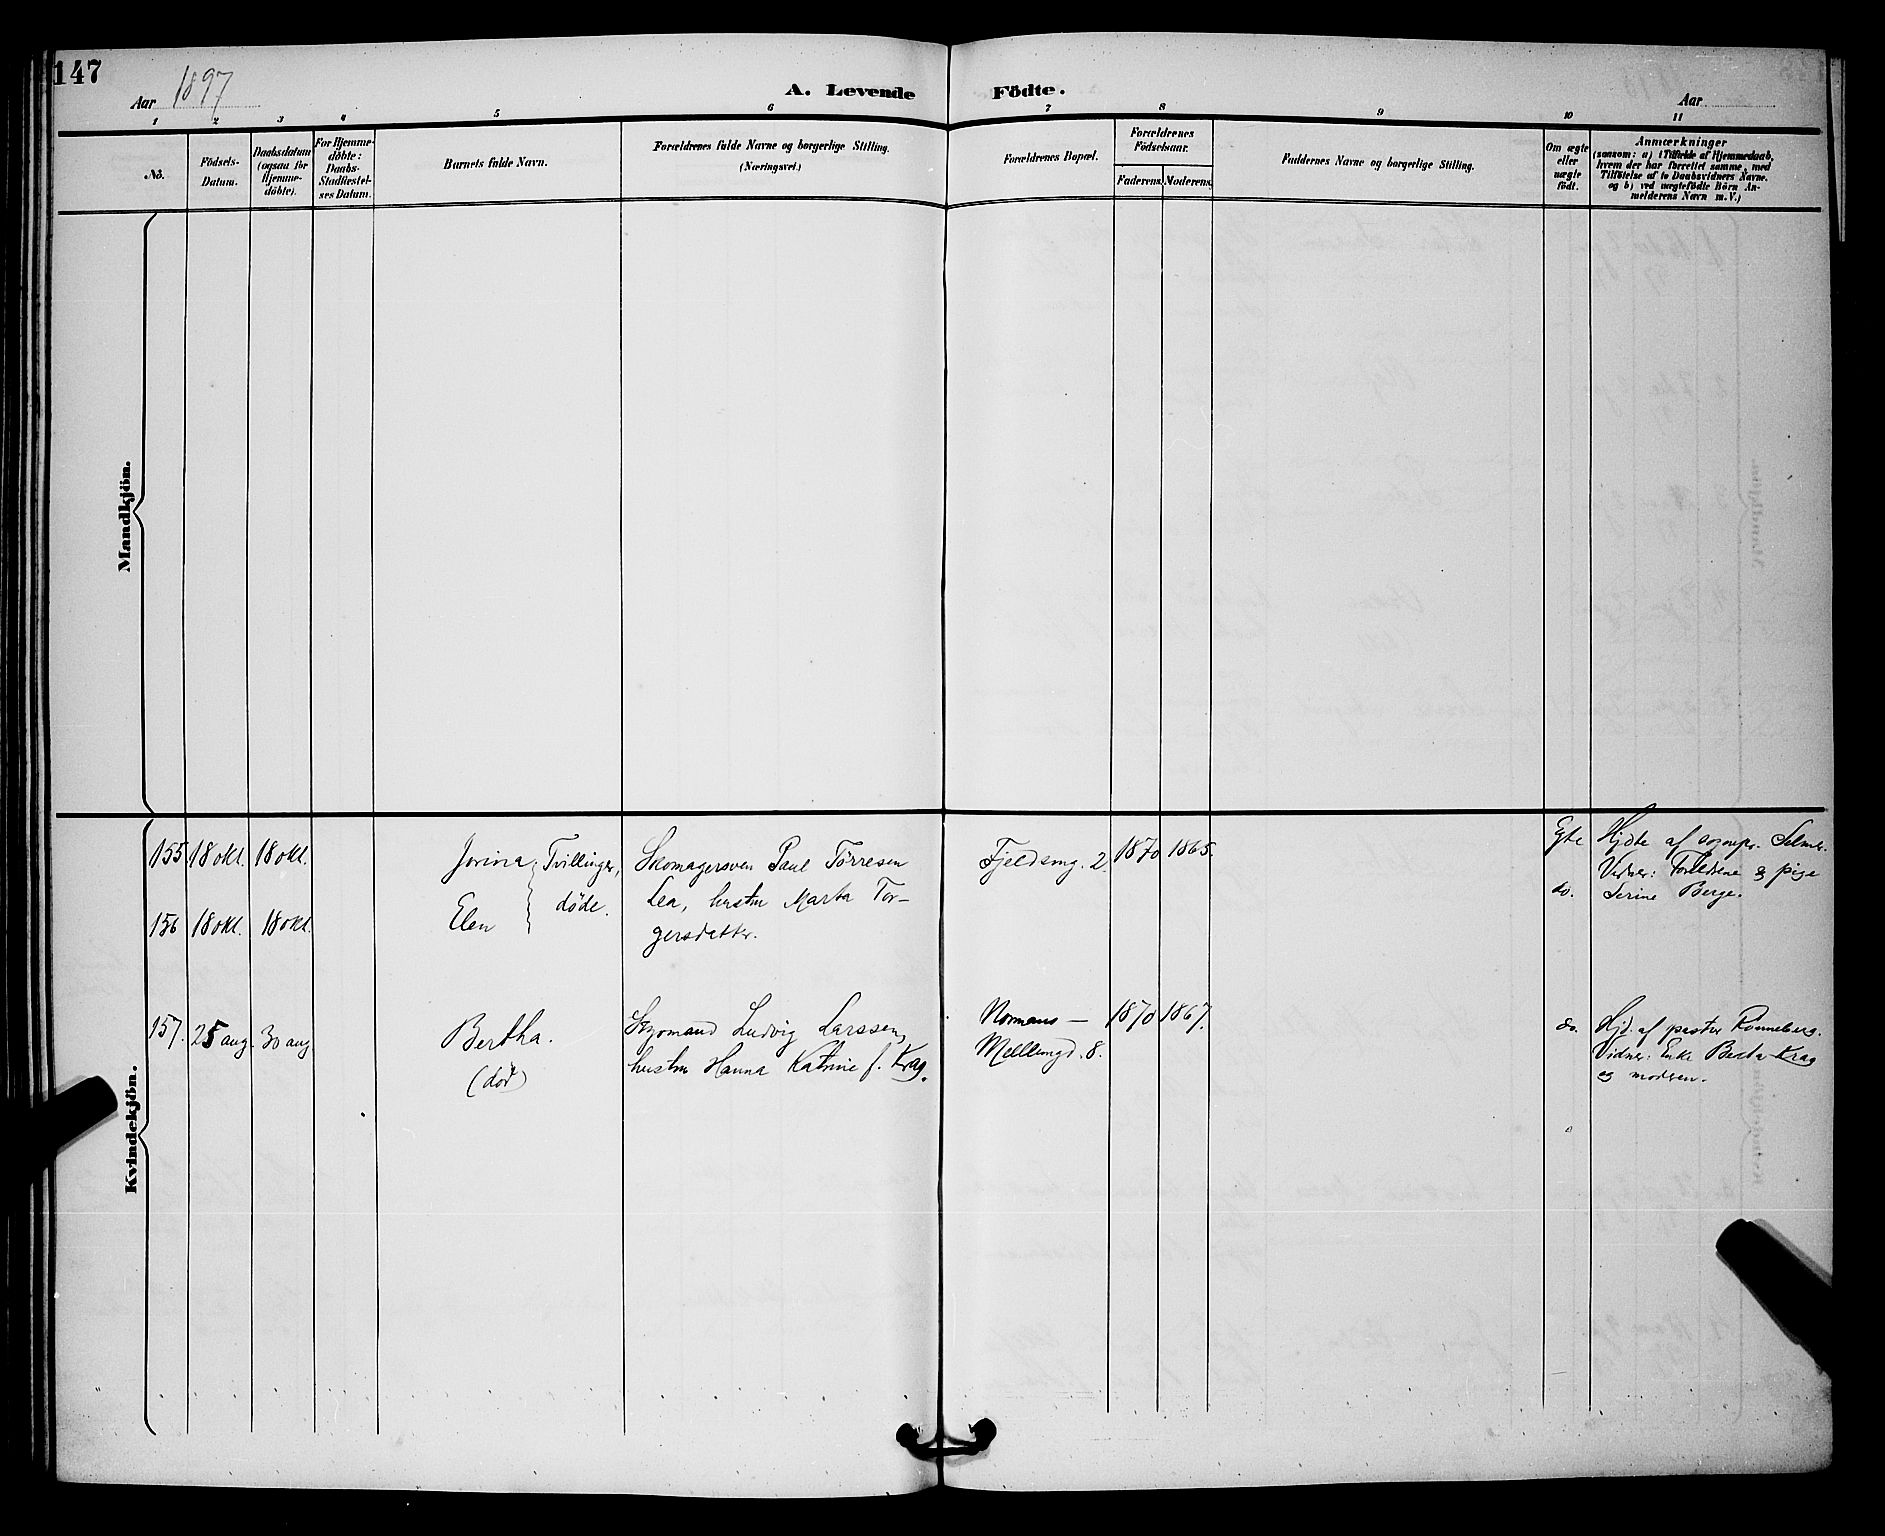 147
Aar 1897
A. Levende Födte.
Aar
1 2 3 4 5 6 7 8 9 10 11
No.
Födsels-
Datum.
Daabsdatum
(ogsaa for
Hjemme-
döbte).
For Hjemme-
döbte:
Daabs-
Stadfæstel-
ses Datum.
Barnets fulde Navn.
Forældrenes fulde Navne og borgerlige Stilling.
(Næringsvei.)
Forældrenes Bopæl.
Forældrenes
Födselsaar.
Faderens. Moderens.
Faddernes Navne og borgerlige Stilling.
Om ægte
eller
uægte
födt.
Anmærkninger
(saasom: a) i Tilfælde af Hjemmedaab,
hvem der har forrettet samme, med
Tilföielse af to Daabsvidners Navne.
og b) ved uægtefödte Börn An-
melderens Navn m. V.)
Mandkjön.
Kvindekjön.
155 18 okt. 18 okt. Jorina Tvillinger,
156 18 okt. 18 okt. Elen døde.
Skomagersven Paul Tørresen
Lea, hustru Marta Tor-
gersdatter.
Fjeldsmg. 2. 1870 1865.
Egte
do.
Hjdte af sognepr. Selmer.
Vidner: Forældrene & pige
Serine Berge.
157. 25 aug. 30 aug. Bertha.
(død)
Skyomand Ludvig Larssen,
hustru Hanna Katrine f. Krag.
Normans-
Mellemgd. 8.
1870 1867.
do.
Hjd. af pastor Ronneberg.
Vidner: Enke Berta Krag
og modren.